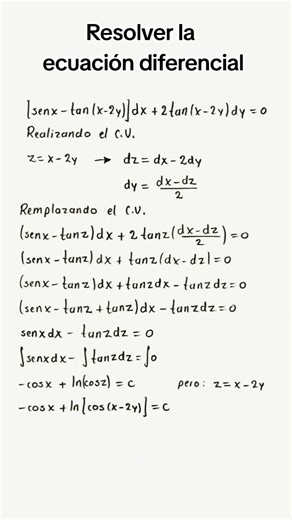 Resolver la
ecuación diferencial
[senx - tan(x-2y)]dx + 2tan(x-2y)dy = 0
Realizando el C.V.
z = x - 2y → dz = dx - 2dy
dy = (dx-dz)/2
Remplazando el C.V.
(senx - tanz)dx + 2 tanz((dx-dz)/2) = 0
(senx - tanz)dx + tanz(dx - dz) = 0
(senx - tanz)dx + tanzdx - tanzdz = 0
(senx - tanz + tanz)dx - tanzdz = 0
senxdx - tanzdz = 0
∫senxdx - ∫tanzdz = ∫0
-cosx + ln(cosz) = c pero: z = x - 2y
-cosx + ln[cos(x-2y)] = c